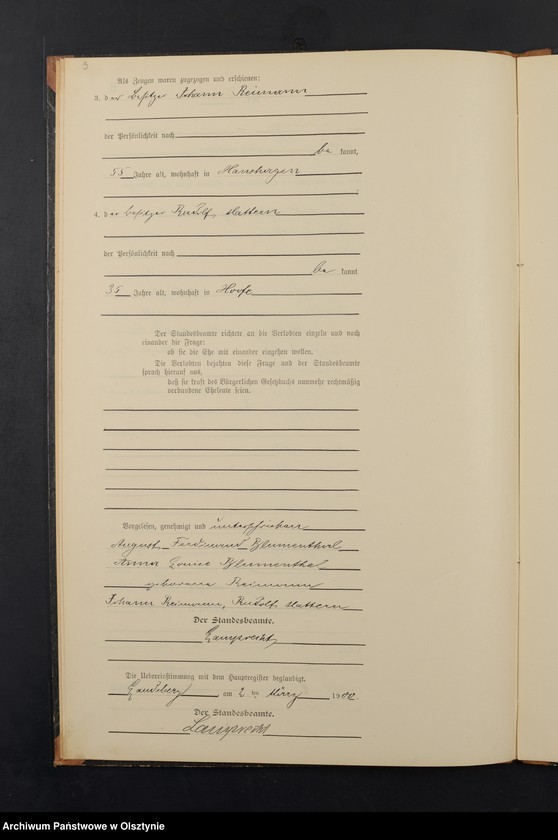 3
Als Zeugen waren zugezogen und erschienen:
3. der Besitzer Johann Reimann
der Persönlichkeit nach
be kannt,
55 Jahre alt, wohnhaft in Hanshagen
4. der Besitzer Rudolf Mattern
der Persönlichkeit nach
be kannt
35 Jahre alt, wohnhaft in Hoofe
Der Standesbeamte richtete an die Verlobten einzeln und nach
einander die Frage:
ob sie die Ehe mit einander eingehen wollen.
Die Verlobten bejahten diese Frage und der Standesbeamte
sprach hierauf aus,
daß sie kraft des Bürgerlichen Gesetzbuchs nunmehr rechtmäßig
verbundene Eheleute seien.
Vorgelesen, genehmigt und unterschrieben
August Ferdinand Blumenthal
Anna Louise Blumenthal
geborene Reimann
Johann Reimann, Rudolf Mattern
Der Standesbeamte.
Lamprecht
Die Uebereinstimmung mit dem Hauptregister beglaubigt.
Landsberg am 2 ten März 1902.
Der Standesbeamte.
Lamprecht
Archiwum Państwowe w Olsztynie